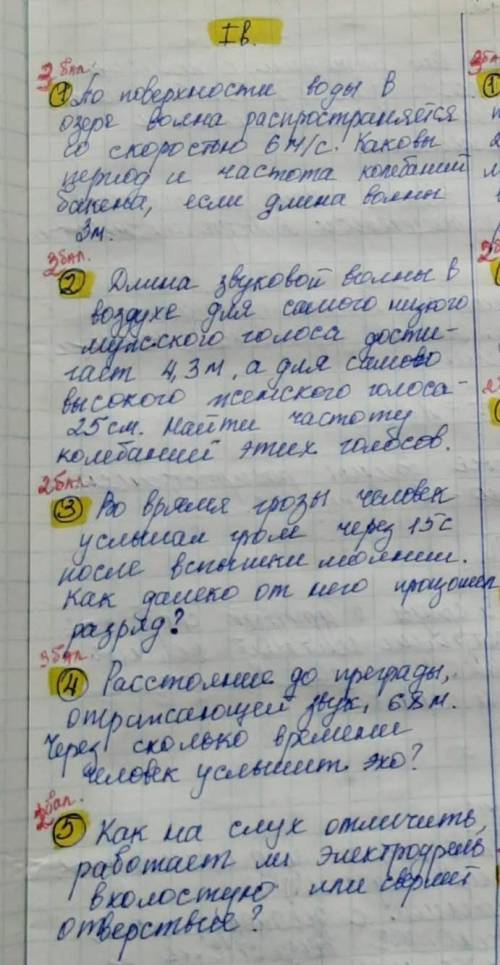 I в.
3 бал.
① По поверхности воды в
озере волна распространяется
со скоростью 6 м/с. Каковы
период и частота колебаний
бакена, если длина волны
3м.
3 бал.
② Длина звуковой волны в
воздухе для самого низкого
мужского голоса дости-
гает 4,3 м, а для самого
высокого женского голоса-
25 см. Найти частоту
колебаний этих голосов.
2 бал.
③ Во время грозы человек
услышал гром через 15с
после вспышки молнии.
Как далеко от него произошел
разряд?
3 бал.
④ Расстояние до преграды,
отражающей звук, 68 м.
Через сколько времени
человек услышит эхо?
2 бал.
⑤ Как на слух отличить,
работает ли электродрель
вхолостую или сверлит
отверстие?